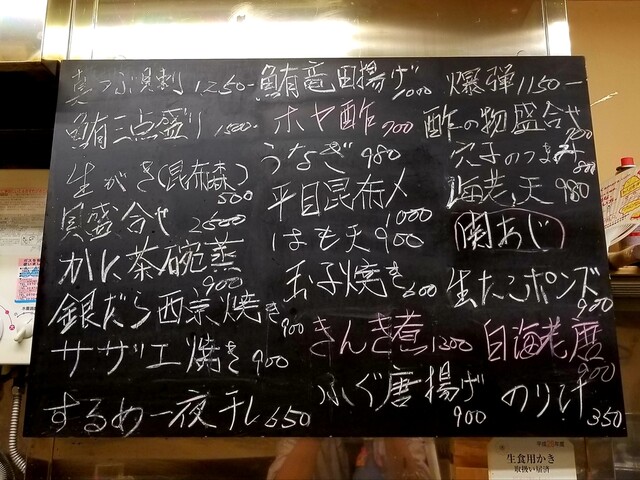 真つぶ貝刺 1250-
鮪三点盛り 1500-
生がき(昆布森) 500
貝盛合せ 2500
かに茶碗蒸 900
銀だら西京焼き 900
サザエ焼き 900
するめ一夜干し 650
鮪竜田揚げ 1000
ホヤ酢 700
うなぎ 980
平目昆布〆 1000
はも天 900
玉子焼き 600
きんき煮 1200
ふぐ唐揚げ 900
爆弾 1150-
酢の物盛合せ
穴子のつまみ 800
海老天 980
関あじ
生たこポンズ 900
白海老 900
のり汁 350
平成28年度
生食用かき
取扱い届済